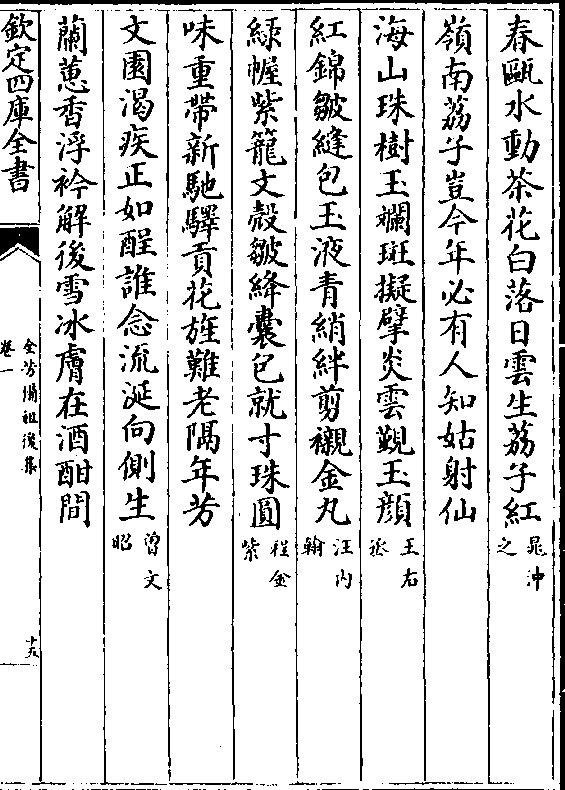 春甌水動茶花白落日雲生荔子紅晁沖之
嶺南荔子豈今年必有人知姑射仙
海山珠樹玉斕斑擬擘炎雲覲玉顔王右丞
紅錦皺縫包玉液青綃絆剪襯金丸汪内翰
緑幄紫籠文殼皺絳囊包就寸珠圓程金紫
味重帶新馳驛貢花旌難老隅年芳
文園渴疾正如酲誰念流涎向側生曽文昭
蘭蕙香浮衿解後雪冰膚在酒酣間
欽定四庫全書
全芳備祖後集
卷一
十五